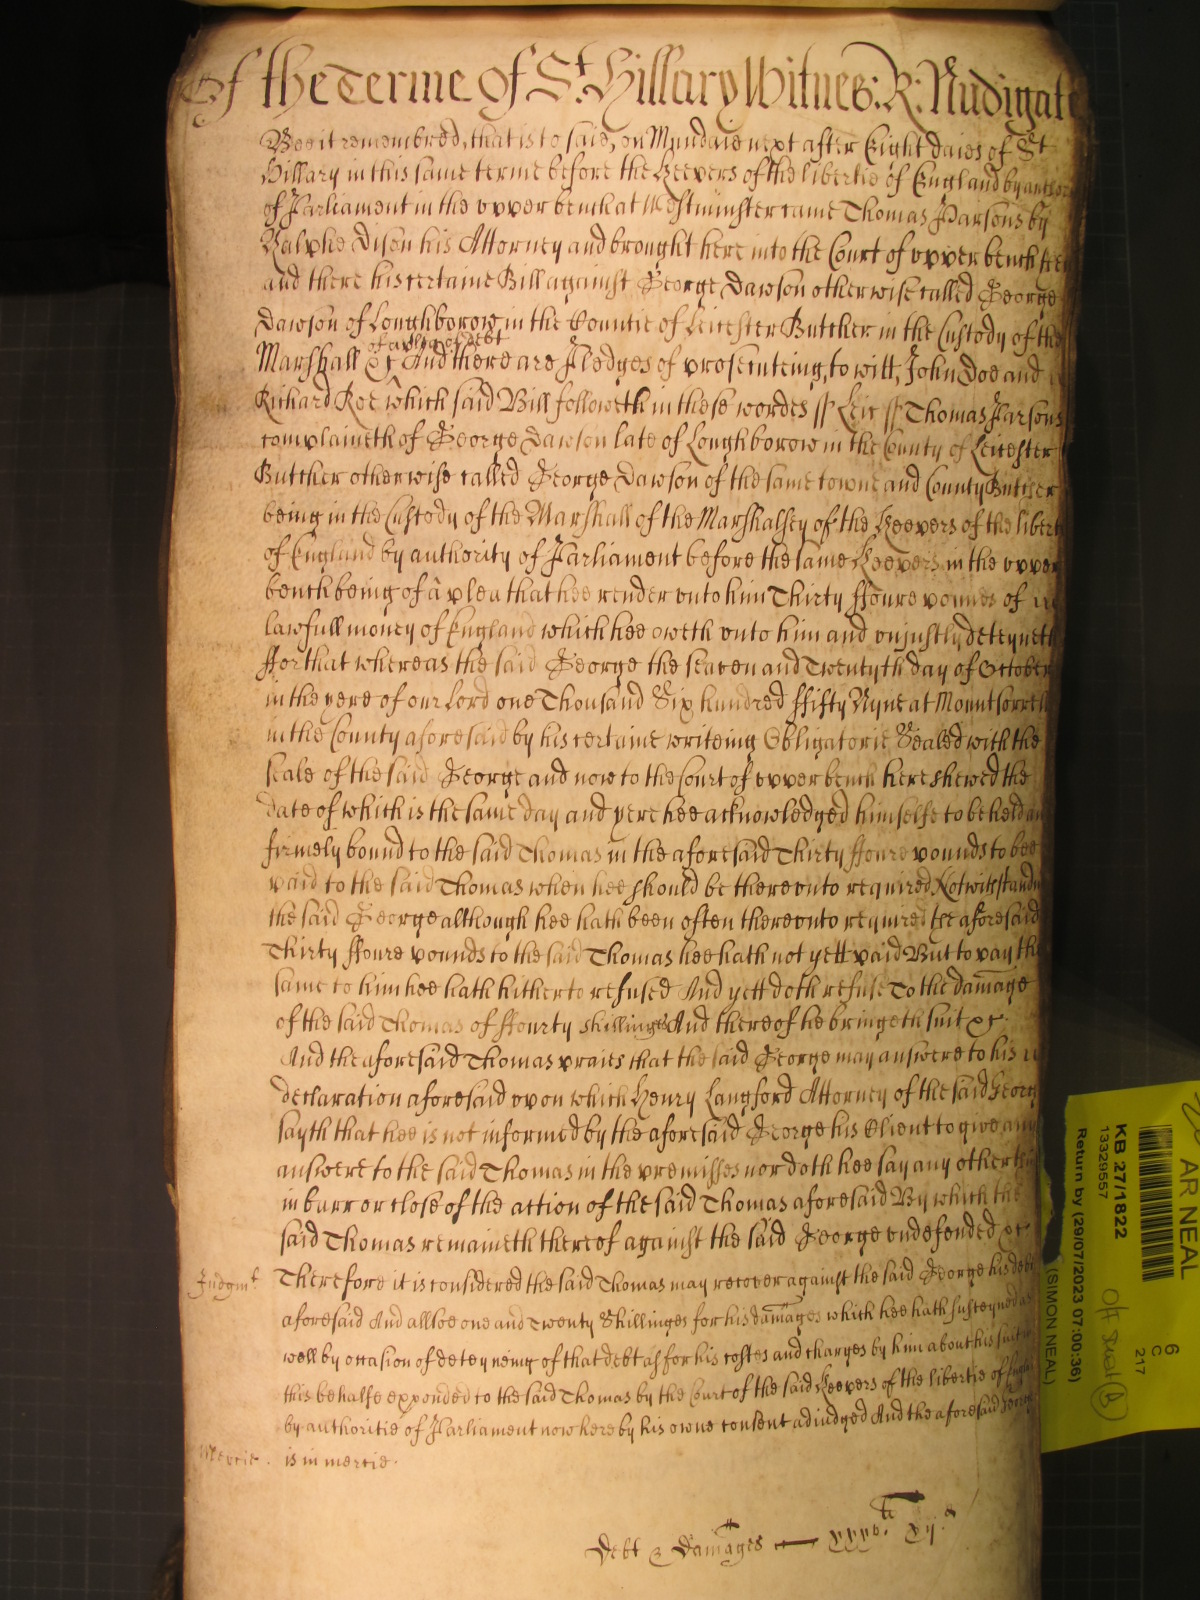 Of the Terme of St. Hillary Witnes: R: Nudigate
Bee it remembred, that is to said, on Mundaie next after Eight daies of St
Hillary in this same terme before the Keepers of the libertie of England by author
of Parliament in the upper bench at Westminster came Thomas Parsons by
Ralphe Dison his Attorney and brought here into the Court of upper bench
and there his certaine Bill against George Dawson otherwise called George
Dawson of Loughborow in the Countie of Leicester Butcher in the Custody of the
of a plea of debt
Marshall &c And there are Pledges of prosecuteing, to witt, John Doe and
Richard Roe which said Bill followeth in these wordes // Leic // Thomas Parsons
complaineth of George Dawson late of Loughborow in the County of Leicester
Butcher otherwise called George Dawson of the same towne and County Butcher
being in the Custody of the Marshall of the Marshalsey of the Keepers of the libert
of England by authority of Parliament before the same Keepers in the upper
bench being of a plea that hee render unto him Thirty ffoure pounds of
lawfull money of England which hee oweth unto him and unjustly deteyneth
ffor that whereas the said George the seaven and Twentyth day of October
in the yere of our Lord one Thousand Six hundred ffifty Nyne at Mountsorrell
in the County aforesaid by his certaine writeing Obligatorie Sealed with the
seale of the said George and now to the Court of upper bench here shewed the
date of which is the same day and yere hee acknowledged himselfe to be held an
firmely bound to the said Thomas in the aforesaid Thirty ffoure pounds to bee
paid to the said Thomas when hee should be thereunto required Notwithstandi
the said George although hee hath been often thereunto required the aforesaid
Thirty ffoure pounds to the said Thomas hee hath not yett paid But to pay the
same to him hee hath hitherto refused And yett doth refuse To the damage
of the said Thomas of ffourty skillinges And thereof he bringeth suit &c
And the aforesaid Thomas praies that the said George may answere to his
declaration aforesaid upon which Henry Langford Attorney of the said George
sayth that hee is not informed by the aforesaid George his Client to give any
answere to the said Thomas in the premisses nor doth hee say any other
in barr or close of the action of the said Thomas aforesaid By which the
said Thomas remaineth thereof against the said George undefended &c
Judgmt Therefore it is considered the said Thomas may recover against the said George his debt
aforesaid And allsoe one and Twenty Skillinges for his damages which hee hath susteyned as
well by occasion of deteyneing of that debt as for his costes and charges by him about his suit
this behalfe expended to the said Thomas by the Court of the said Keepers of the libertie of Engla
by authoritie of Parliament now here by his owne consent adjudged And the aforesaid George
Mercie. is in mercie.
Debt & Damages
AR NEAL
6
C
217
KB 27/1822
13329557
Return by (29/07/2023 07:00:36)
(SIMON NEAL)